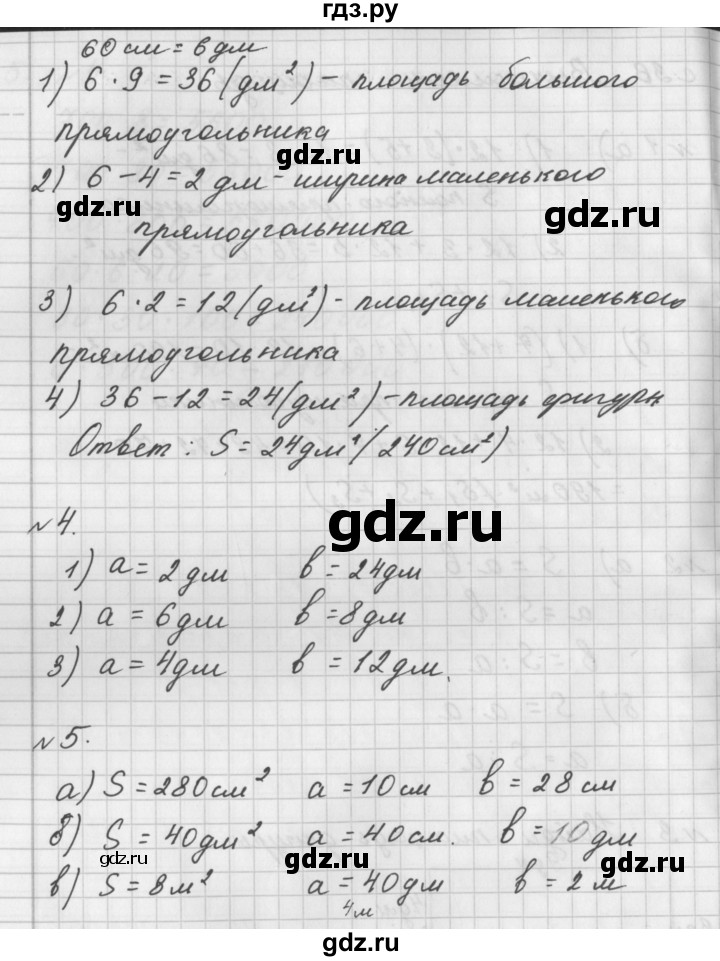 гдз.ру
60 см = 6 дм
1) 6 · 9 = 36 (дм²) – площадь большого
прямоугольника
gdz.ru
gdz.ru
2) 6 – 4 = 2 дм – ширина маленького
прямоугольника
gdz.ru
3) 6 · 2 = 12 (дм²) – площадь маленького
прямоугольника
gdz.ru
4) 36 – 12 = 24 (дм²) – площадь фигуры
Ответ : S = 24 дм² (240 см²)
gdz.ru
№ 4.
1) a = 2 дм b = 24 дм
2) a = 6 дм b = 8 дм
gdz.ru
3) a = 4 дм b = 12 дм.
gdz.ru
№ 5.
а) S = 280 см² a = 10 см b = 28 см
б) S = 40 дм² a = 40 см. b = 10 дм
gdz.ru
gdz.ru
gdz.ru
в) S = 8 м² a = 40 дм b = 2 м
4 м
gdz.ru